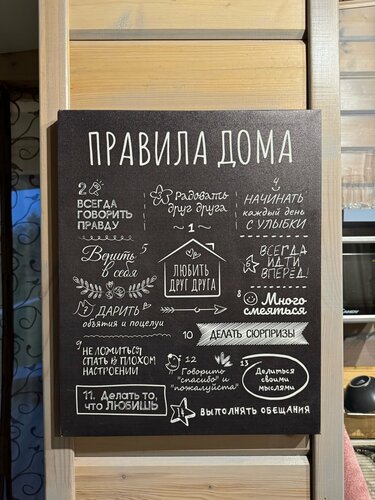 ПРАВИЛА ДОМА
2
ВСЕГДА
ГОВОРИТЬ
ПРАВДУ
3
Радовать
друг друга
4
НАЧИНАТЬ
каждый день
С УЛЫБКИ
1
ЛЮБИТЬ
ДРУГ ДРУГА
5
Верить
в себя
ВСЕГДА
ИДТИ
ВПЕРЕД!
ДАРИТЬ
объятия и поцелуи
8
Много
смеяться
9
НЕ ЛОЖИТЬСЯ
СПАТЬ В ПЛОХОМ
НАСТРОЕНИИ
10
ДЕЛАТЬ СЮРПРИЗЫ
11. Делать то,
что ЛЮБИШЬ
12
Говорить
"спасибо" и
"пожалуйста"
13
Делиться
своими
мыслями
14
ВЫПОЛНЯТЬ ОБЕЩАНИЯ